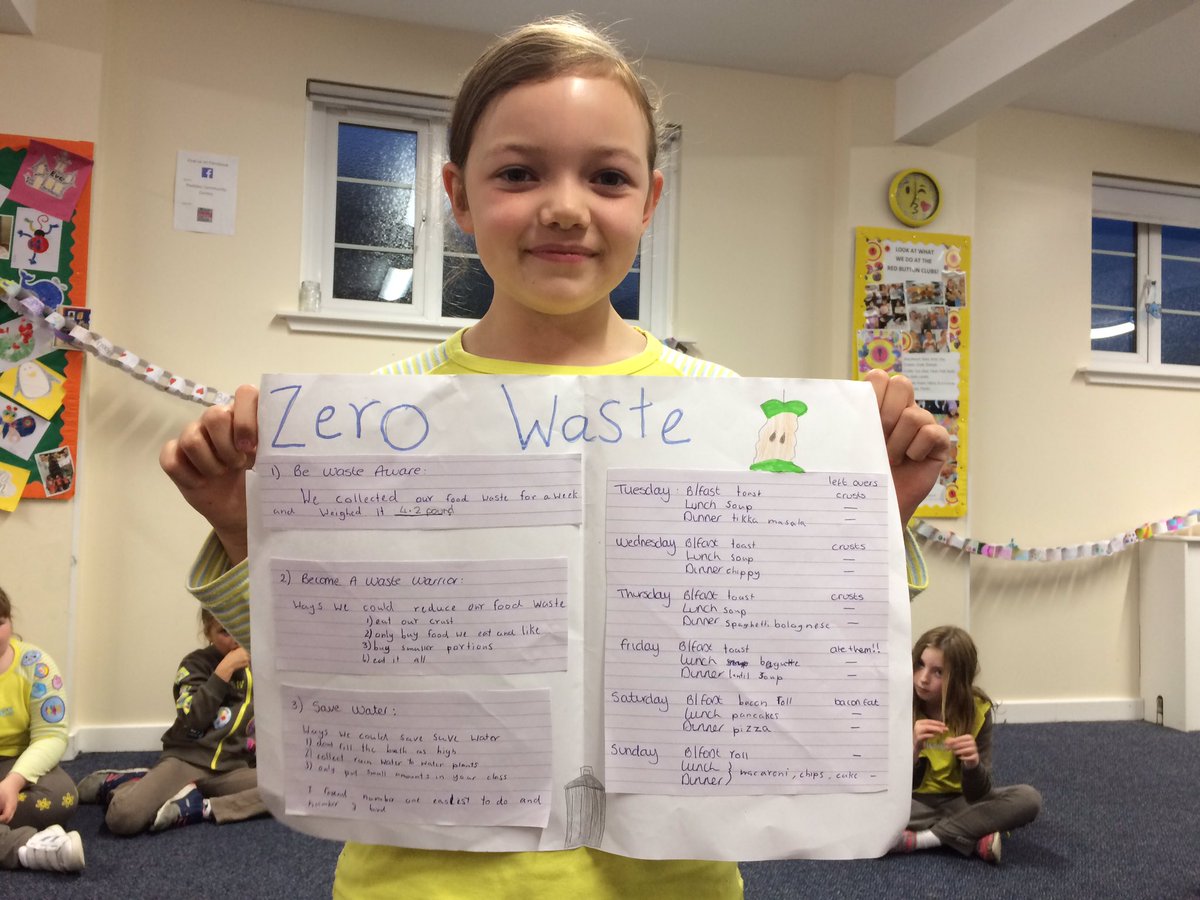 Zero Waste
1) Be Waste Aware:
We collected our food waste for a week
and weighed it 4.2 pound
2) Become A Waste Warrior:
Ways we could reduce our food waste
1) eat our crust
2) only buy food we eat and like
3) buy smaller portions
4) eat it all
3) Save Water:
Ways we could save save water
1) dont fill the bath as high
2) collect rain water to water plants
3) only put small amounts in your glass
I found number one easiest to do and
number 3 hard
left overs
Tuesday: B/fast toast crusts
Lunch soup —
Dinner tikka masala —
Wednesday B/fast toast crusts
Lunch soup —
Dinner chippy —
Thursday B/fast toast crusts
Lunch soup —
Dinner spaghetti bolognese —
Friday B/fast toast ate them!!
Lunch soup baguette —
Dinner lentil soup —
Saturday B/fast bacon roll bacon fat
Lunch pancakes —
Dinner pizza —
Sunday B/fast roll —
Lunch } macaroni, chips, cake —
Dinner }
Find us on Facebook
LOOK AT WHAT
WE DO AT THE
RED BUTTON CLUBS!